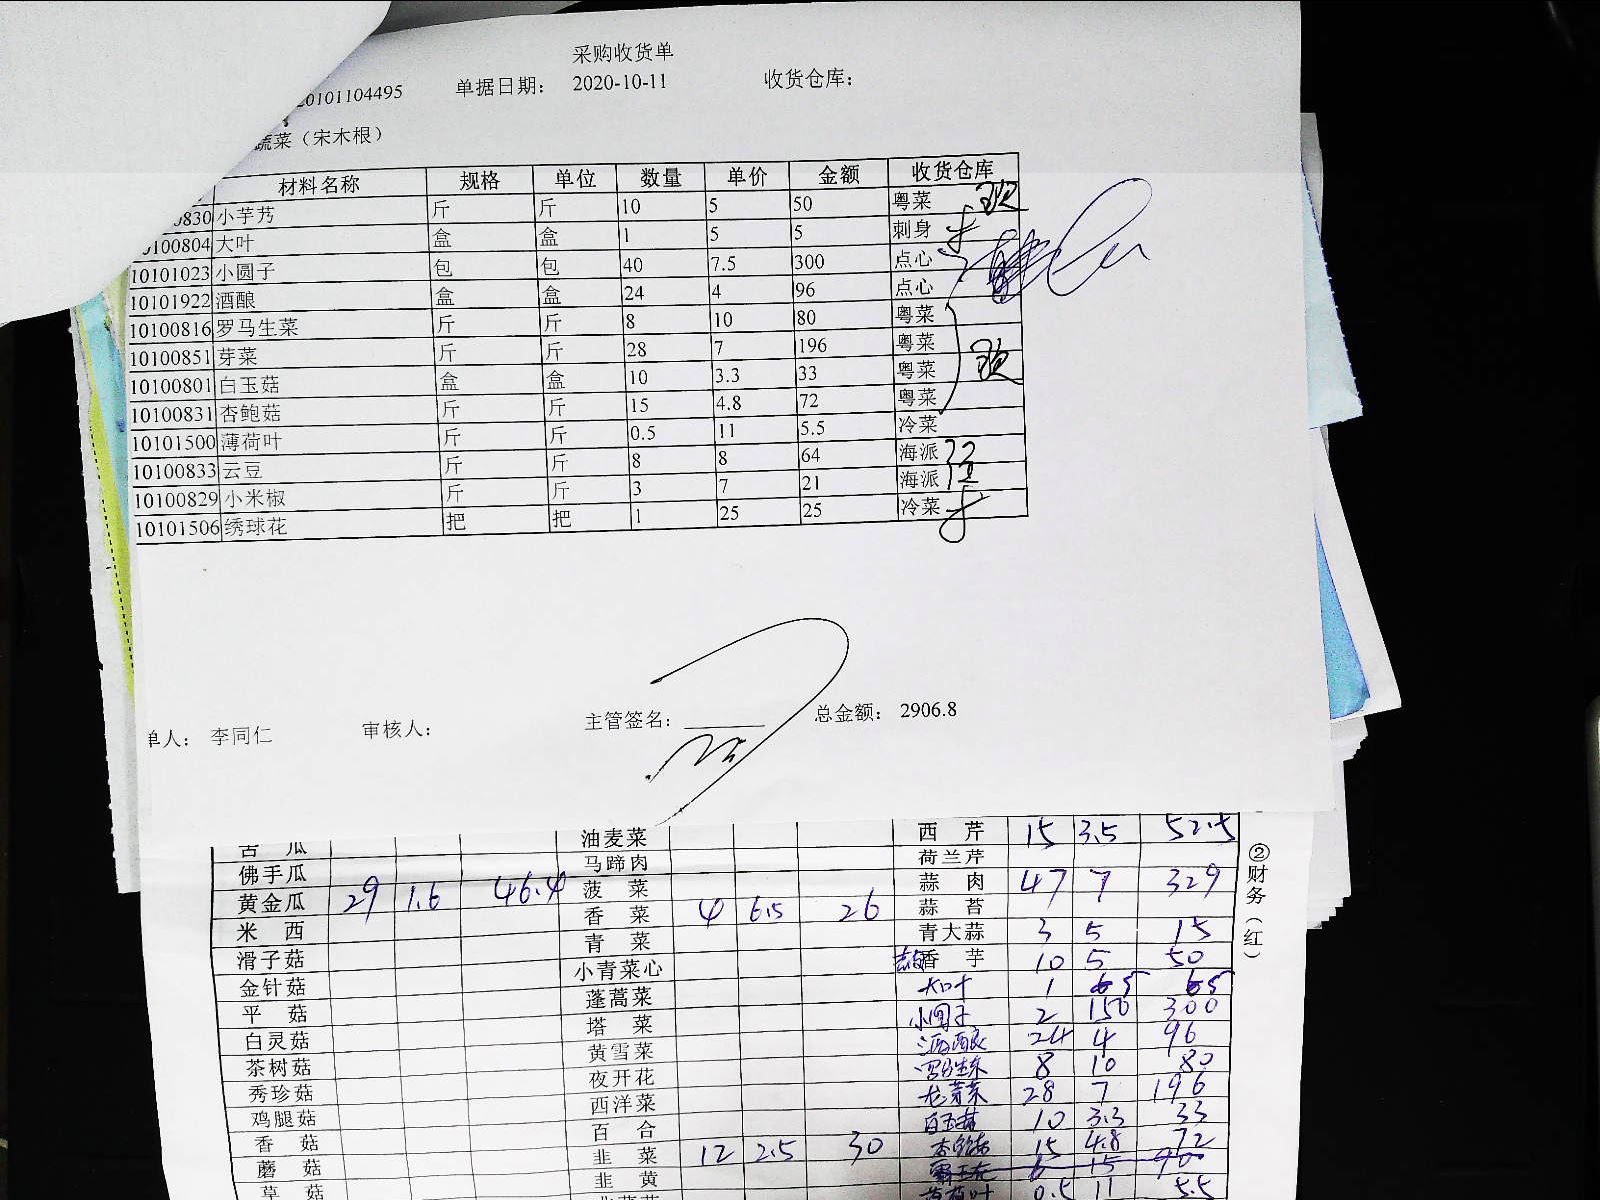 采购收货单
20101104495 单据日期： 2020-10-11 收货仓库：
蔬菜（宋木根）
材料名称 规格 单位 数量 单价 金额 收货仓库
0830 小芋艿 斤 斤 10 5 50 粤菜
10100804 大叶 盒 盒 1 5 5 刺身
10101023 小圆子 包 包 40 7.5 300 点心
10101922 酒酿 盒 盒 24 4 96 点心
10100816 罗马生菜 斤 斤 8 10 80 粤菜
10100851 芽菜 斤 斤 28 7 196 粤菜
10100801 白玉菇 盒 盒 10 3.3 33 粤菜
10100831 杏鲍菇 斤 斤 15 4.8 72 粤菜
10101500 薄荷叶 斤 斤 0.5 11 5.5 冷菜
10100833 云豆 斤 斤 8 8 64 海派
10100829 小米椒 斤 斤 3 7 21 海派
10101506 绣球花 把 把 1 25 25 冷菜
单人： 李同仁 审核人： 主管签名： 总金额： 2906.8
苦瓜 油麦菜 西芹 15 3.5 52.5
佛手瓜 马蹄肉 荷兰芹
黄金瓜 29 1.6 46.4 菠菜 蒜肉 47 7 329
米西 香菜 4 6.5 26 蒜苔
滑子菇 青菜 青大蒜 3 5 15
金针菇 小青菜心 香芋 10 5 50
平菇 蓬蒿菜 大叶 1 5 5
白灵菇 塔菜 小圆子 2 150 300
茶树菇 黄雪菜 酒酿 24 4 96
秀珍菇 夜开花 罗马生菜 8 10 80
鸡腿菇 西洋菜 28 7 196
香菇 百合 白玉菇 10 3.3 33
蘑菇 韭菜 12 2.5 30 杏鲍菇 15 4.8 72
草菇 韭黄 6 15 90
薄荷叶 0.5 11 5.5
②财务（红）